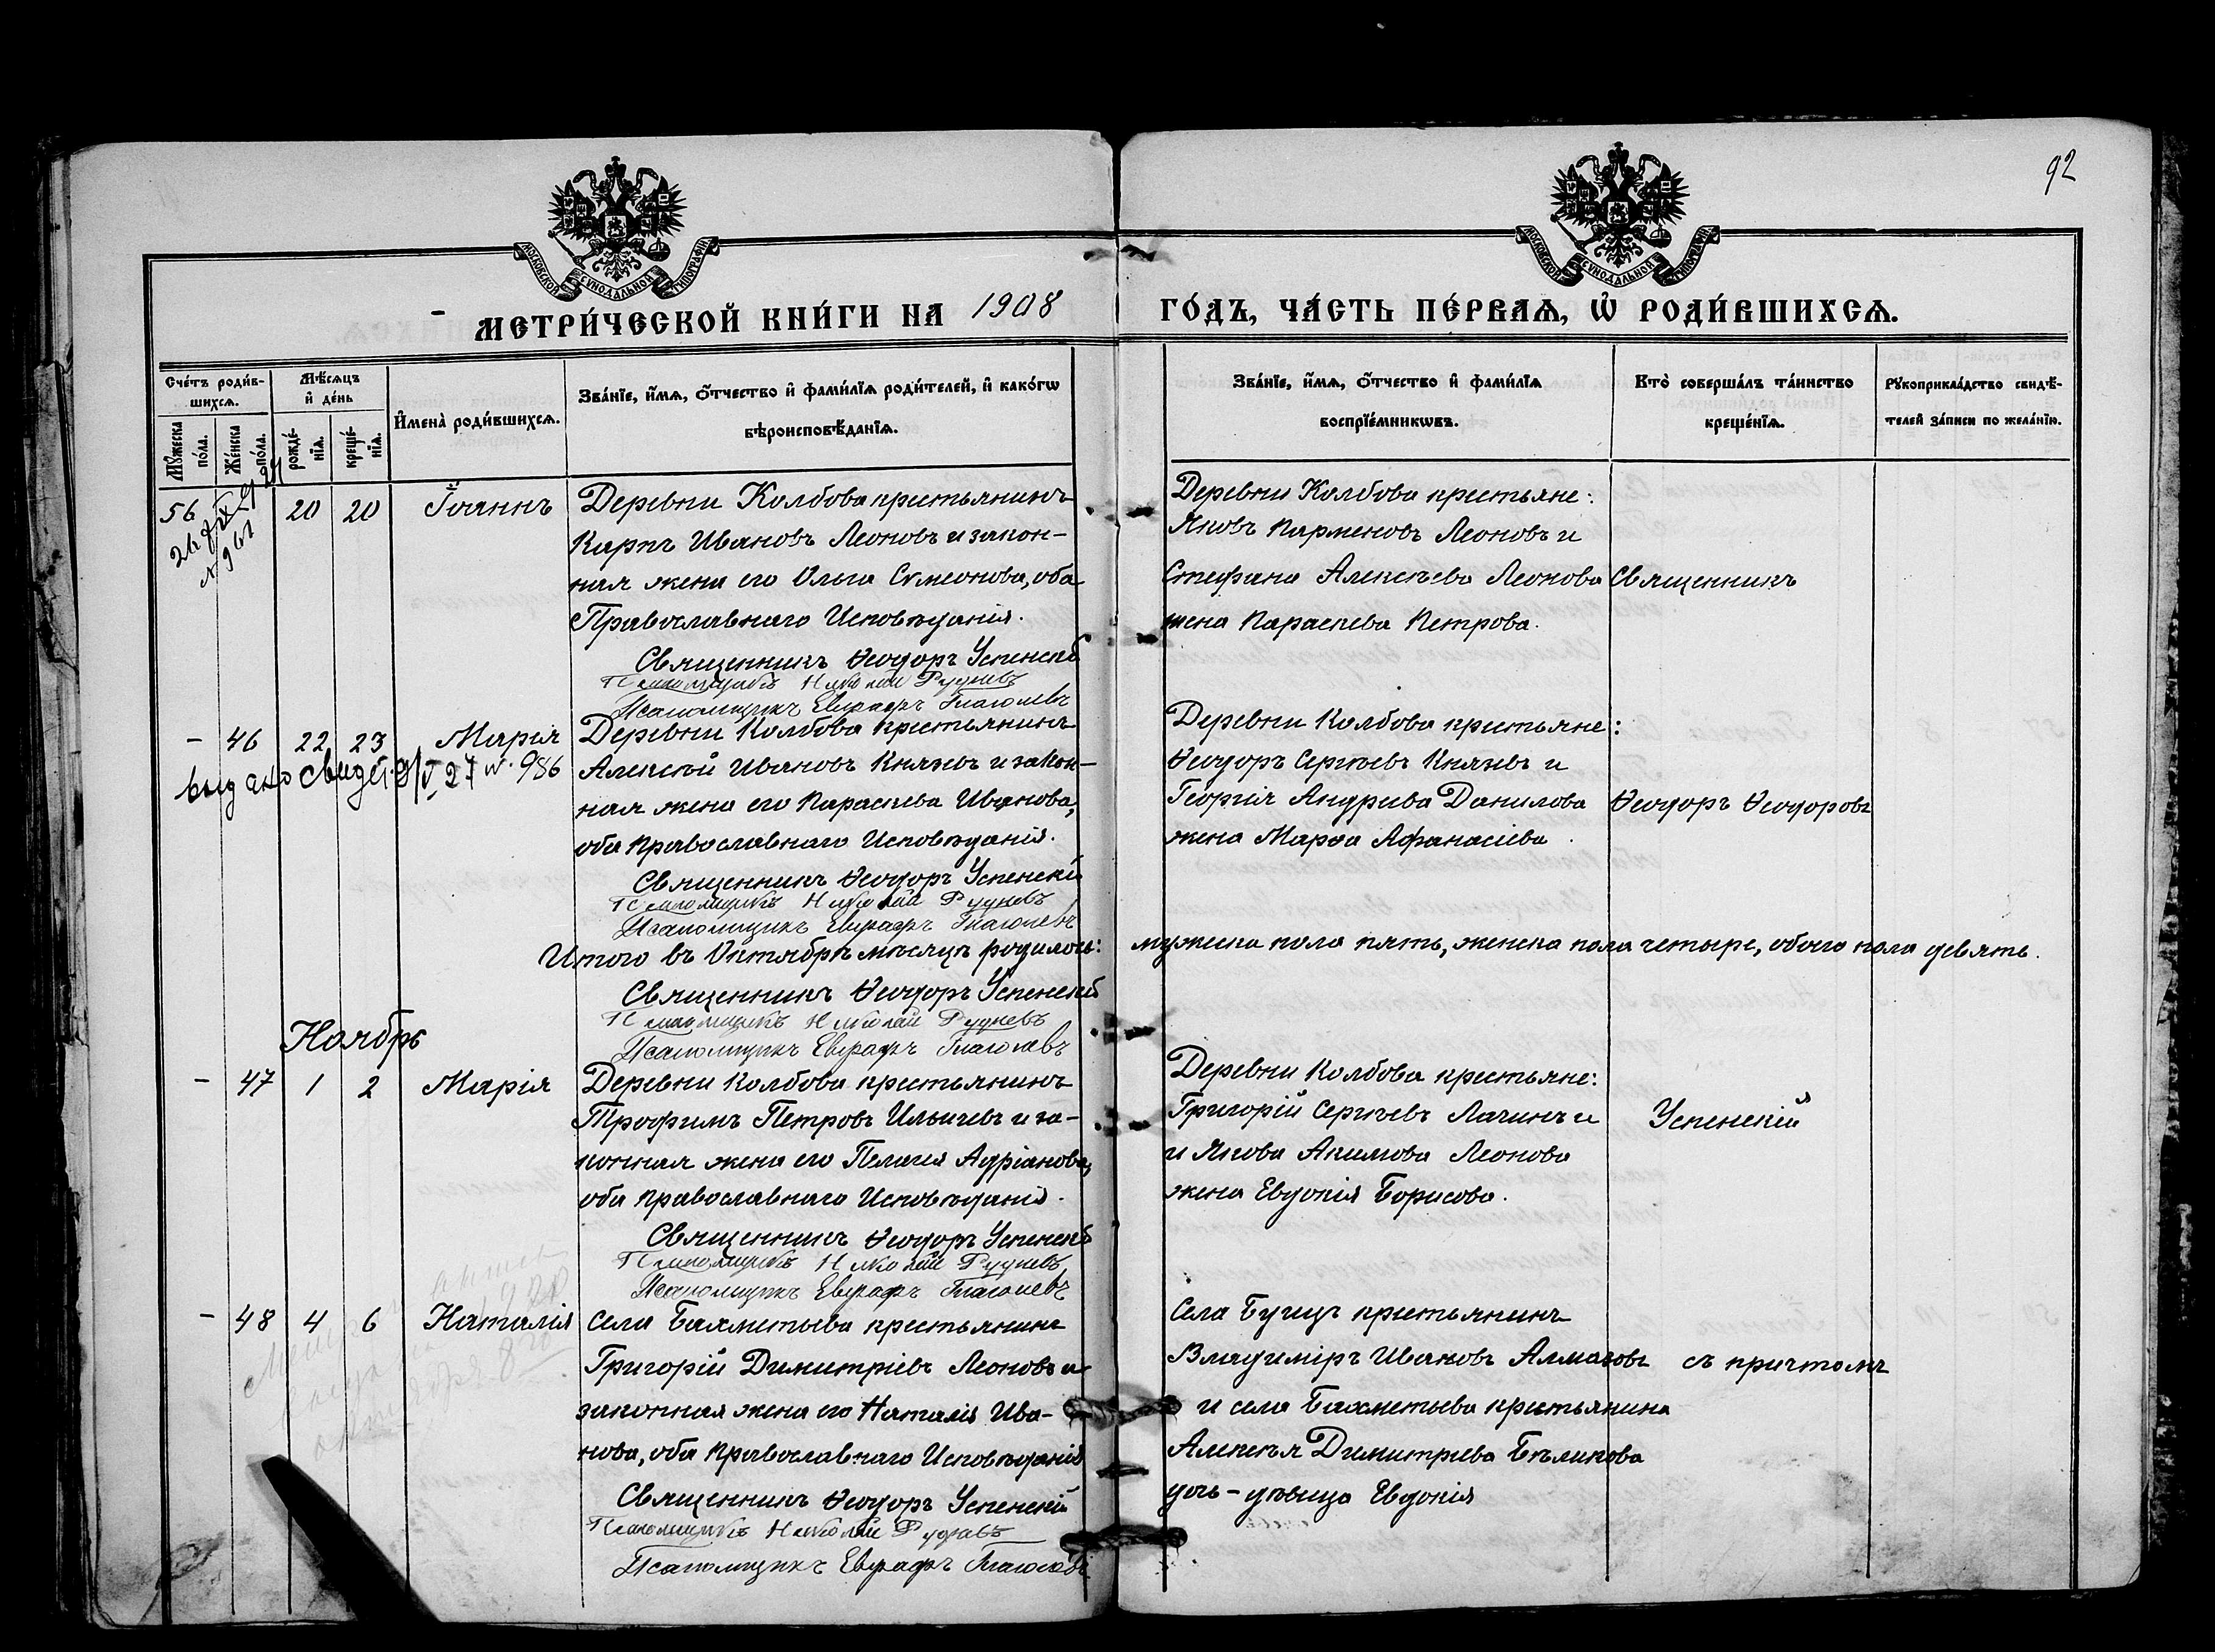 92
МОСКОВСКОЙ СУНОДАЛЬНОЙ ТИПОГРАФІИ
МОСКОВСКОЙ СУНОДАЛЬНОЙ ТИПОГРАФІИ
МЕТРИ́ЧЕСКОЙ КНИ́ГИ НА 1908 ГО́ДЪ, ЧА́СТЬ ПЕ́РВАѦ, Ѡ҆ РОДИ́ВШИХСѦ.
Сче́тъ роди́в-
шихсѧ.
Мꙋ́жеска по́ла.
Же́нска по́ла.
Мѣ́сѧцъ
и҆ де́нь
рожде́-
нїѧ.
креще́-
нїѧ.
И҆мена̀ роди́вшихсѧ.
Зва́нїе, и҆́мѧ, ѻ҆́тчество и҆ фами́лїѧ роди́телей, и҆ како́гѡ
вѣроисповѣ́данїѧ.
Зва́нїе, и҆́мѧ, ѻ҆́тчество и҆ фами́лїѧ
воспрїе́мникѡвъ.
Кто̀ соверша́лъ та́инство
креще́нїѧ.
Рꙋкоприкла́дство свидѣ́-
телей за́писи по жела́нїю.
56 20 20 Іоаннъ
26
№ 961
Деревни Колбова крестьянинъ
Карпъ Ивановъ Леоновъ и закон-
ная жена его Ольга Сѵмеонова, оба
Православнаго Исповѣданія.
Священникъ Ѳеодоръ Успенскій
Псаломщикъ Николай Рудневъ
Псаломщикъ Евграфъ Глаголевъ
Деревни Колбова крестьяне:
Яковъ Парменовъ Леоновъ и
Стефана Алексѣева Леонова
жена Параскева Петрова.
Священникъ
- 46 22 23 Марія
выдано свидѣт. 9/V 27 №. 986
Деревни Колбова крестьянинъ
Алексѣй Ивановъ Князевъ и закон-
ная жена его Параскева Иванова,
оба Православнаго Исповѣданія.
Священникъ Ѳеодоръ Успенскій
Псаломщикъ Николай Рудневъ
Псаломщикъ Евграфъ Глаголевъ
Деревни Колбова крестьяне:
Ѳеодоръ Сергѣевъ Князевъ и
Георгія Андреева Данилова
жена Марѳа Афанасіева.
Ѳеодоръ Ѳеодоровъ
Итого въ Октябрѣ мѣсяцѣ родилось: мужеска пола пять, женска пола четыре, обоего пола девять.
Священникъ Ѳеодоръ Успенскій
Псаломщикъ Николай Рудневъ
Псаломщикъ Евграфъ Глаголевъ
Ноябрь
- 47 1 2 Марія
Деревни Колбова крестьянинъ
Трофимъ Петровъ Ильичевъ и за-
конная жена его Пелагія Адріанова,
оба Православнаго Исповѣданія.
Священникъ Ѳеодоръ Успенскій
Псаломщикъ Николай Рудневъ
Псаломщикъ Евграфъ Глаголевъ
Деревни Колбова крестьяне:
Григорій Сергѣевъ Лачинъ и
и Якова Акимова Леонова
жена Евдокія Борисова.
Успенскій
- 48 4 6 Наталія
Села Бахметьева крестьянинъ
Григорій Димитріевъ Леоновъ и
законная жена его Наталія Ива-
нова, оба Православнаго Исповѣданія
Священникъ Ѳеодоръ Успенскій
Псаломщикъ Николай Рудневъ
Псаломщикъ Евграфъ Глаголевъ
Села Бучицъ крестьянинъ
Владиміръ Ивановъ Алмазовъ
и села Бахметьева крестьянина
Алексѣя Димитріева Бѣликова
дочь - дѣвица Евдокія
съ причтомъ